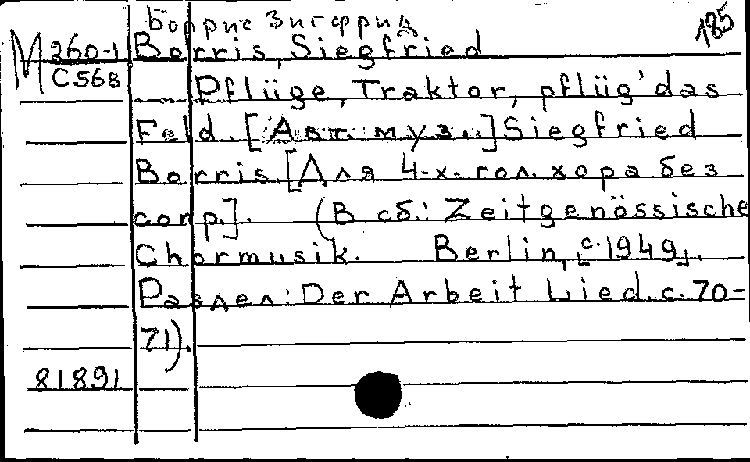 Боррис Зигфрид
185
М 260-1
С568
Borris, Siegfried
Pflüge, Traktor, pflüg' das
Feld. [Авт. муз.:] Siegfried
Borris [Для 4-х гол. хора без
сопр.]. (В сб.: Zeitgenössische
Chormusik. Berlin, [c. 1949].
Раздел: Der Arbeit Lied. с. 70-
71).
81891